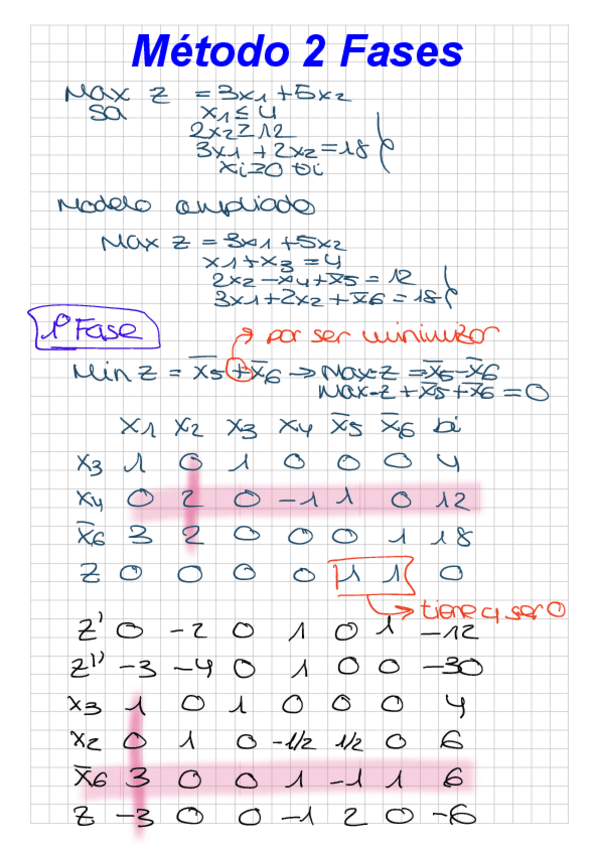 Método 2 Fases
Max Z = 3x1 + 5x2
sa x1 ≤ 4
2x2 ≥ 12
3x1 + 2x2 = 18
xi ≥ 0 ∀i
Modelo ampliado
Max Z = 3x1 + 5x2
x1 + x3 = 4
2x2 - x4 + x̄5 = 12
3x1 + 2x2 + x̄6 = 18
1ª Fase
por ser minimizar
Min Z = x̄5 + x̄6 → Max -Z = -x̄5 - x̄6
Max -Z + x̄5 + x̄6 = 0
x1 x2 x3 x4 x̄5 x̄6 bi
x3 1 0 1 0 0 0 4
x4 0 2 0 -1 1 0 12
x̄6 3 2 0 0 0 1 18
Z 0 0 0 0 1 1 0
→ tiene q ser 0
Z' 0 -2 0 1 0 1 -12
Z'' -3 -4 0 1 0 0 -30
x3 1 0 1 0 0 0 4
x2 0 1 0 -1/2 1/2 0 6
x̄6 3 0 0 1 -1 1 6
Z -3 0 0 -1 2 0 -6